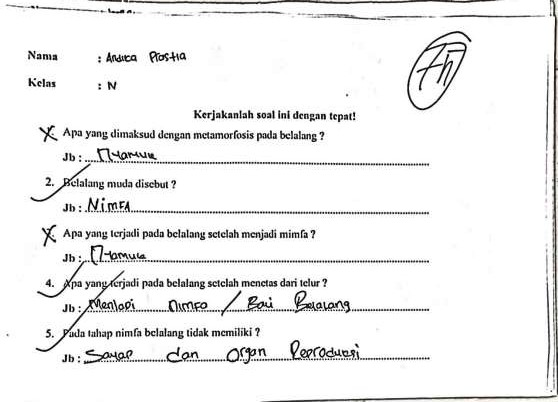 Nama : Andika Prastia
Kelas : IV
Kerjakanlah soal ini dengan tepat!
Apa yang dimaksud dengan metamorfosis pada belalang ?
Jb : Nyamuk
2. Belalang muda disebut ?
Jb : Nimfa
Apa yang terjadi pada belalang setelah menjadi mimfa ?
Jb : Nyamuk
4. Apa yang terjadi pada belalang setelah menetas dari telur ?
Jb : Menjadi nimfa / Bayi Belalang
5. Pada tahap nimfa belalang tidak memiliki ?
Jb : Sayap dan Organ Reproduksi